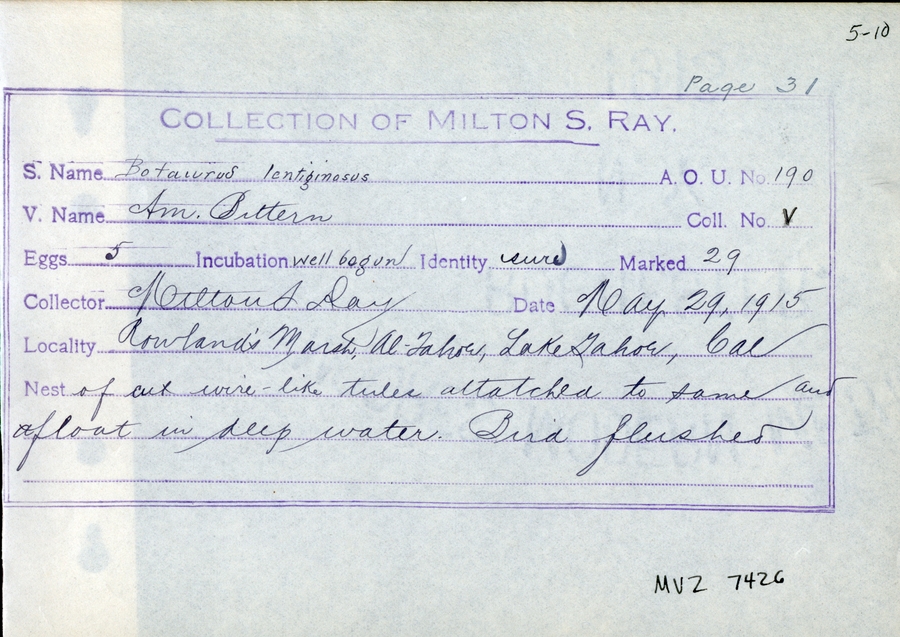 5-10
Page 31
COLLECTION OF MILTON S. RAY.
S. Name Botaurus lentiginosus A. O. U. No. 190
V. Name Am. Bittern Coll. No. V
Eggs 5 Incubation well begun Identity sure Marked 29
Collector Milton S Ray Date May 29, 1915
Locality Rowland's Marsh, Al-Tahoe, Lake Tahoe, Cal
Nest of cut wire-like tules attatched to same and
afloat in deep water. Bird flushed
MVZ 7426